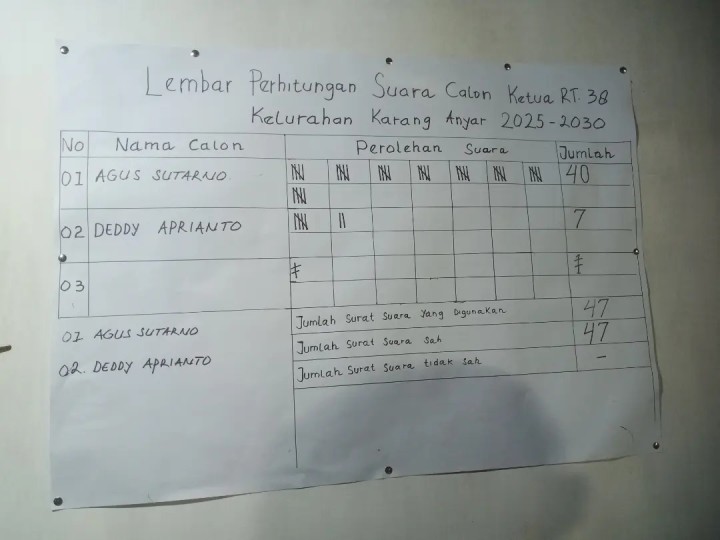 Lembar Perhitungan Suara Calon Ketua RT. 38
Kelurahan Karang Anyar 2025-2030
No Nama Calon Perolehan Suara Jumlah
01 AGUS SUTARNO. 40
02 DEDDY APRIANTO 7
03
Jumlah Surat Suara Yang Digunakan 47
01 AGUS SUTARNO Jumlah Surat Suara Sah 47
02. DEDDY APRIANTO Jumlah Surat Suara tidak Sah -